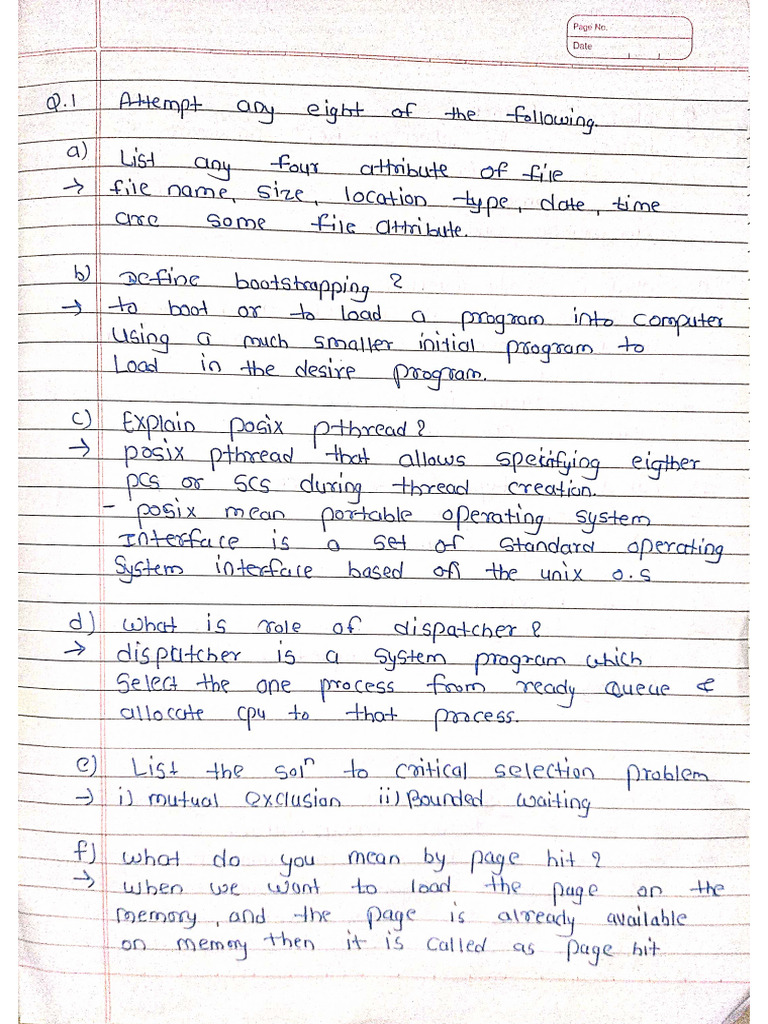 Page No.
Date
Q.1 Attempt any eight of the following.
a) List any four attribute of file
→ file name, size, location type, date, time
are some file attribute.
b) Define bootstrapping ?
→ to boot or to load a program into computer
using a much smaller initial program to
Load in the desire program.
c) Explain posix pthread ?
→ posix pthread that allows specifying eigther
pcs or scs during thread creation.
- posix mean portable operating system
Interface is a set of standard operating
system interface based on the unix o.s
d) what is role of dispatcher ?
→ dispatcher is a system program which
select the one process from ready queue &
allocate cpu to that process.
e) List the solⁿ to critical selection problem
→ i) mutual exclusion ii) Bounded waiting
f) what do you mean by page hit ?
→ when we want to load the page on the
memory, and the page is already available
on memory then it is called as page hit